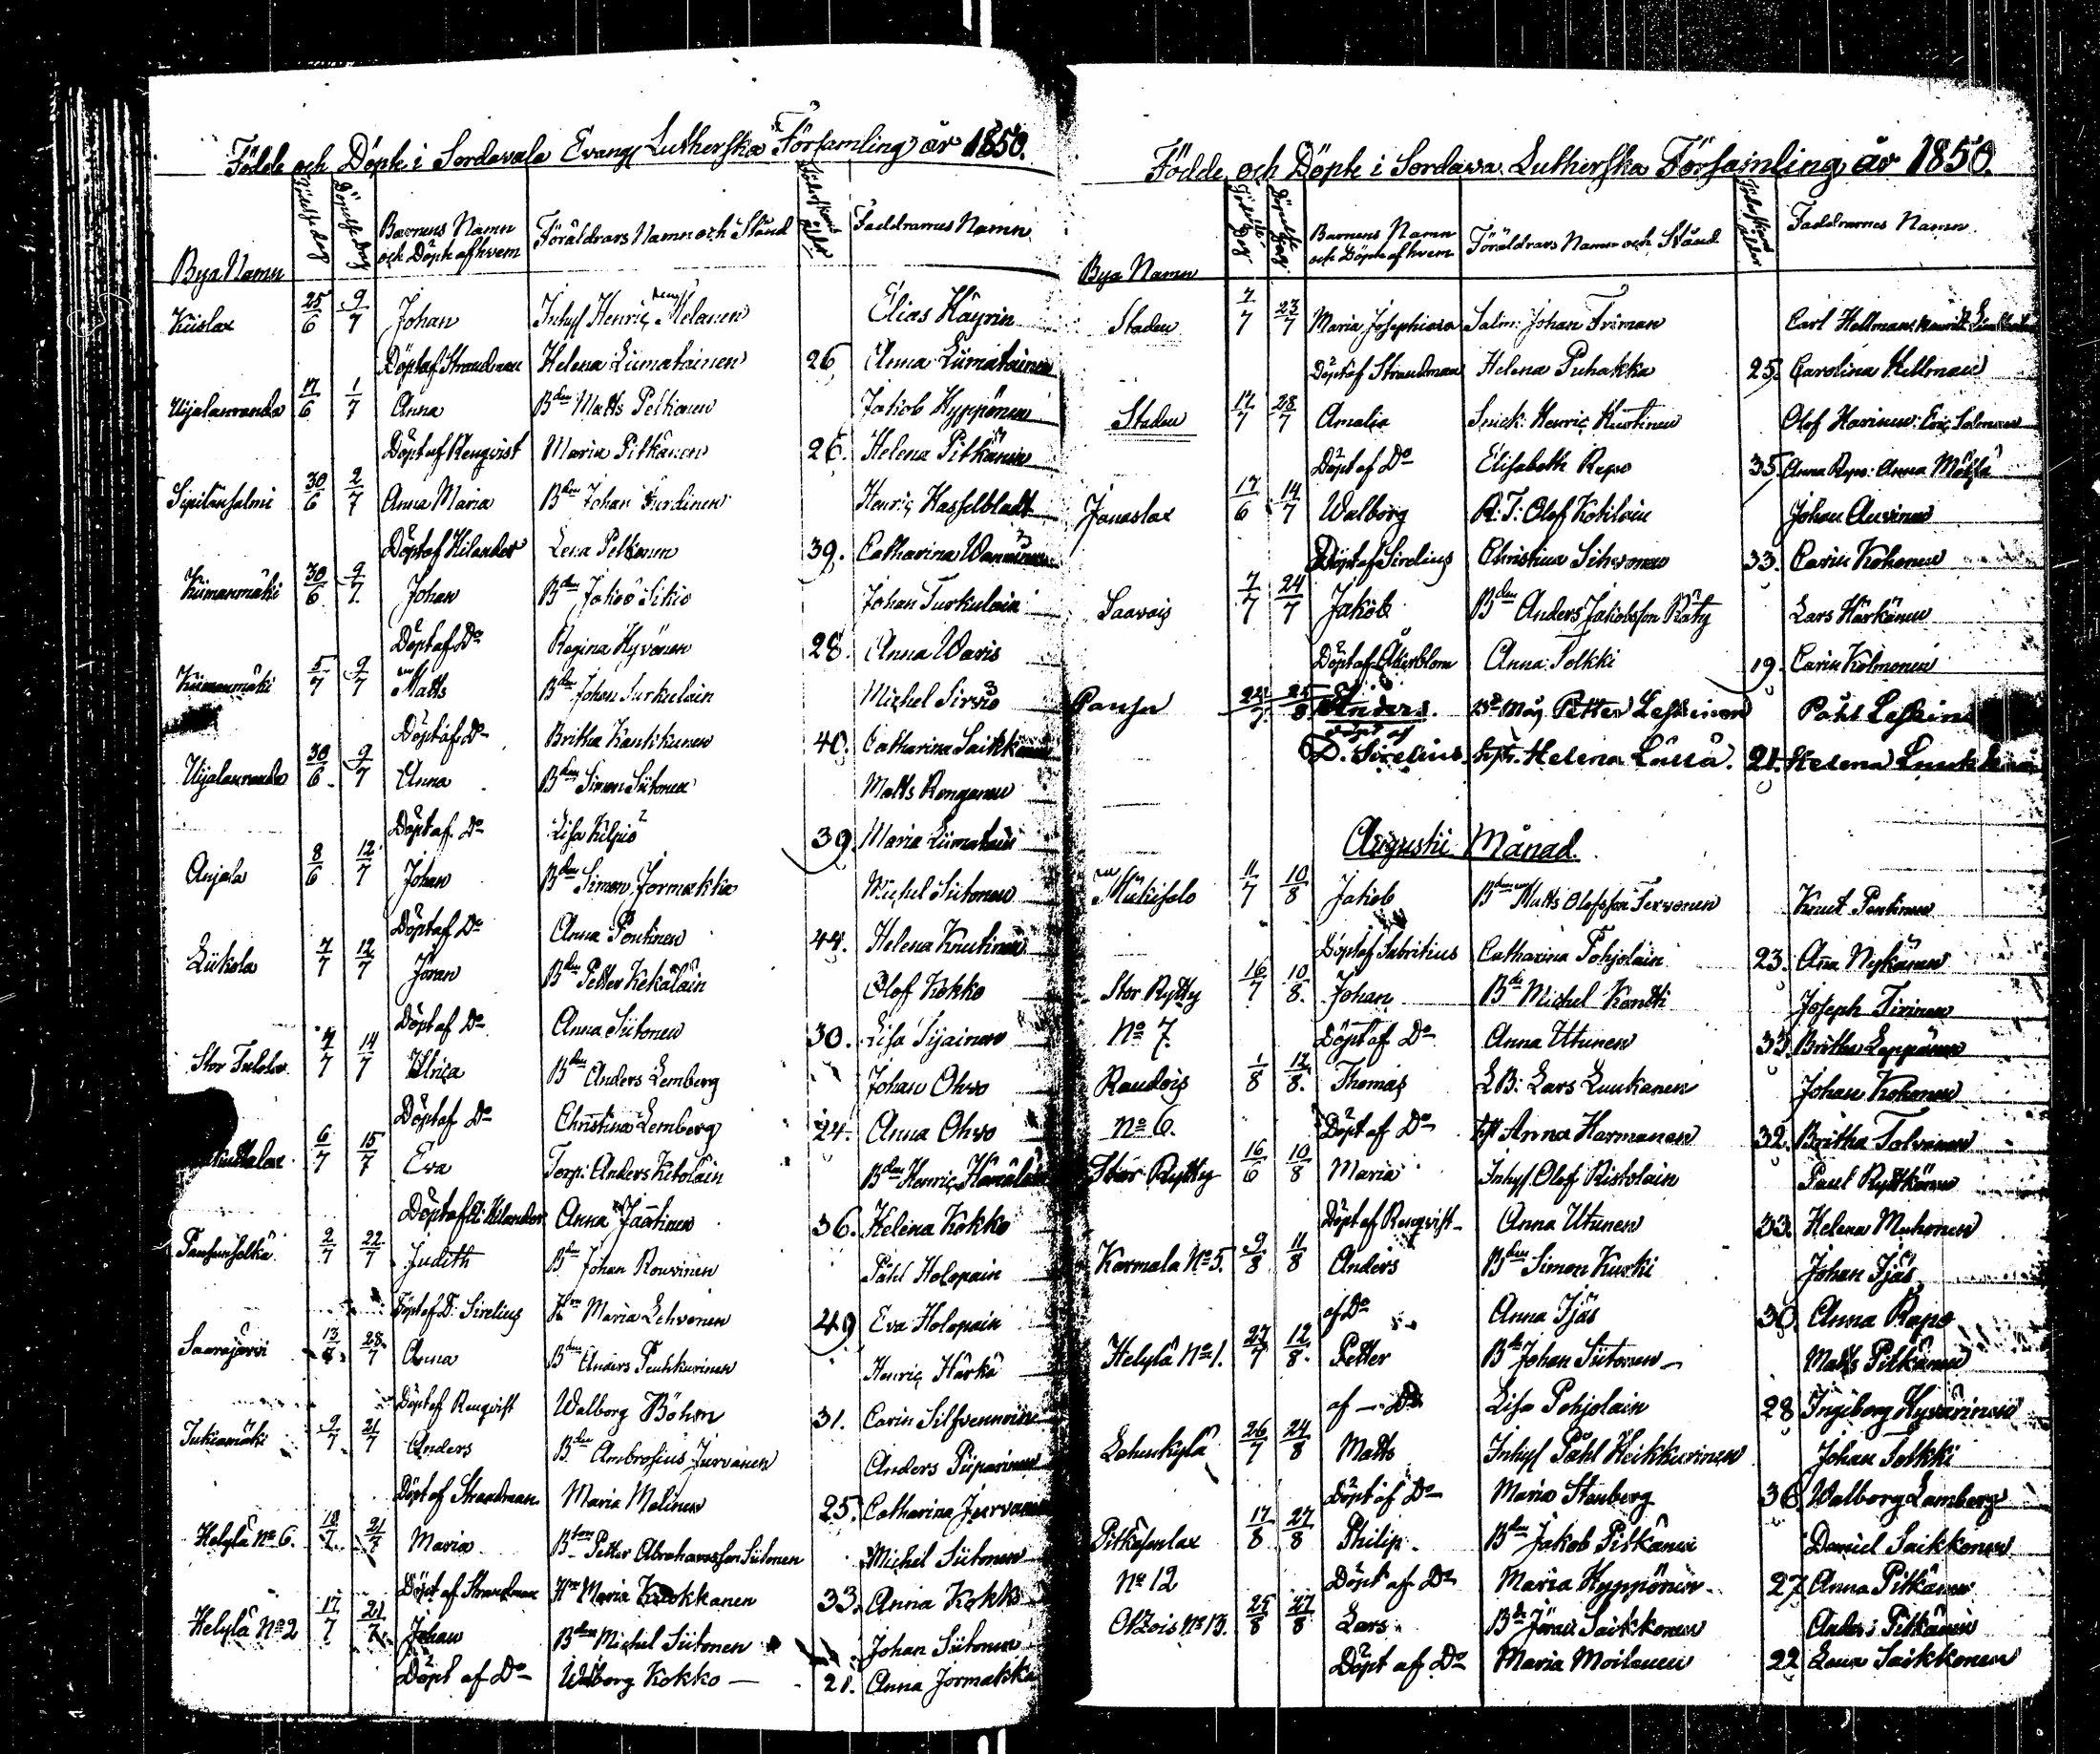 Födde och Döpte i Sordavala Evang Lutherska Församling år 1850.
Bya Namn Födelse dag Döpelse dag Barnens Namn och Döpte af hvem Föräldrars Namn och Stånd Ålder Faddrarnes Namn
Kiislax 25/6 9/7 Johan Inhys Henric Melanen Elias Häyrin
Döpt af Strandman Helena Liimatainen 26 Anna Liimatainen
Uijalanranda 17/6 1/7 Anna Bden Matts Peltonen Jakob Hyppönen
Döpt af Renqvist Maria Pitkänen 26. Helena Pitkänen
30/6 2/7 Anna Maria Bden Johan Henric Hasselbladt
Döpt af Hilander Lena Peltonen 39. Catharina
Kiimanmäki 30/6 9/7 Johan Bden Jakob Sikiö Johan Turkulain
Döpt af Do Regina Hyvönen 28. Anna Waris
Kiimanmäki 5/7 9/7 Matts Bden Johan Turkulain Michel Sirviö
Döpt af Do Britha 40. Catharina
Uijalanranda 30/6 9/7 Anna Bden Simon Siitonen Matts Ronganen
Döpt af Do Lisa Kilpiö 39. Maria Liimatain
Anjala 8/6 12/7 Johan Bden Simon Jormakka Michel Siitonen
Döpt af Do Anna Pentinen 44. Helena Knutinen
Liikola 7/7 12/7 Jöran Bden Petter Kekäläin Olof Kokko
Döpt af Do Anna Siitonen 30. Lisa Sijainen
Stor 7/7 14/7 Ulrica Bden Anders Lemberg Johan Ohvo
Döpt af Do Christina Lemberg 24. Anna Ohvo
6/7 15/7 Eva Torp: Anders Kitolain Bden Henric
Döpt af Hilander Anna 36. Helena Kokko
2/7 22/7 Judith Bden Johan Rouvinen Påhl Holopain
Döpt af D: Sirelius Hon Maria Lehvonen 49 Eva Holopain
Saarajärvi 28/7 Anna Bden Anders Henric Härkä
Döpt af Renqvist Walborg Böhm 31. Carin
Tukiamäki 9/7 21/7 Anders Bden Ambrosius Jurvanen Anders Piiparinen
Döpt af Strandman Maria Malinen 25. Catharina Jurvanen
Helylä No 6. 18/7 21/7 Maria Bden Petter Abrahamsson Siitonen Michel Siitonen
Döpt af Strandman Hon Maria 33. Anna Kokko
Helylä No 2 17/7 21/7 Johan Bden Michel Siitonen Johan Siitonen
Döpt af Do Walborg Kokko 21. Anna Jormakka
Födde och Döpte i Sordava. Lutherska Församling år 1850.
Bya Namn Födelse dag Döpelse dag Barnens Namn och Döpte af hvem Föräldrars Namn och Stånd Ålder Faddrarnes Namn
Staden 7/7 23/7 Maria Josephina Salm: Johan Friman Carl Hellman
Döpt af Strandman Helena Puhakka 25. Carolina Hellman
Staden 17/7 28/7 Amalia Snick: Henric Olof
Döpt af Do Elisabeth Repo 35 Anna Repo:
Janaslax 17/6 14/7 Walborg R:T: Olof Kotilain Johan Auvinen
Döpt af Sirelius Christina Sihvonen 33. Carin Kohonen
Saavais 7/7 24/7 Jakob Bden Anders Jakobsson Räty Lars Härkänen
Döpt af Åkerblom Anna Tolkki 19. Carin Kolmonen
Anders. Petter Leskinen Påhl
Döpt af D. Sirelius. Helena 21. Helena
Augusti Månad.
Miikisalo 11/7 10/8 Jakob Bden Matts Olofsson Tervonen Knut Pentinen
Döpt af Fabritius Catharina Pohjolain 23. Anna Nykänen
Stor Rytty 16/7 10/8. Johan Bden Michel Kontti Joseph Tirinen
No 7. Döpt af Do Anna Utunen 33. Britha Leppänen
Raudois 1/8 12/8. Thomas LB: Lars Luukanen Johan Kohonen
No 6. Döpt af Do Anna Harmanen 32. Britha Tolvanen
Stor Rytty 16/6 10/8 Maria Inhys. Olof Ristolain Paul Rytkönen
Döpt af Renqvist Anna Utunen 33. Helena Muhonen
Karmala No 5. 9/8 11/8 Anders Bden Simon Kurki Johan Ijäs
af Do Anna Ijäs 30. Anna Repo
Helylä No 1. 27/7 12/8. Petter Bden Johan Siitonen Matts Pitkänen
af Do Lisa Pohjolain 28 Ingeborg Hyvärinen
26/7 24/8 Matts Inhys Påhl Heikkurinen Johan Tolkki
Döpt af Do Maria Stenberg 36. Walborg Lamberg
Pitkäsenlax 17/8 27/8 Philip. Bden Jakob Pitkänen Daniel Saikkonen
No 12 Döpt af Do Maria Hyppönen 27. Anna Pitkänen
Otzois No 13. 25/8 27/8 Lars. Bden Jöran Saikkonen Anders Pitkänen
Döpt af Do Maria Moilanen 22 Lena Saikkonen